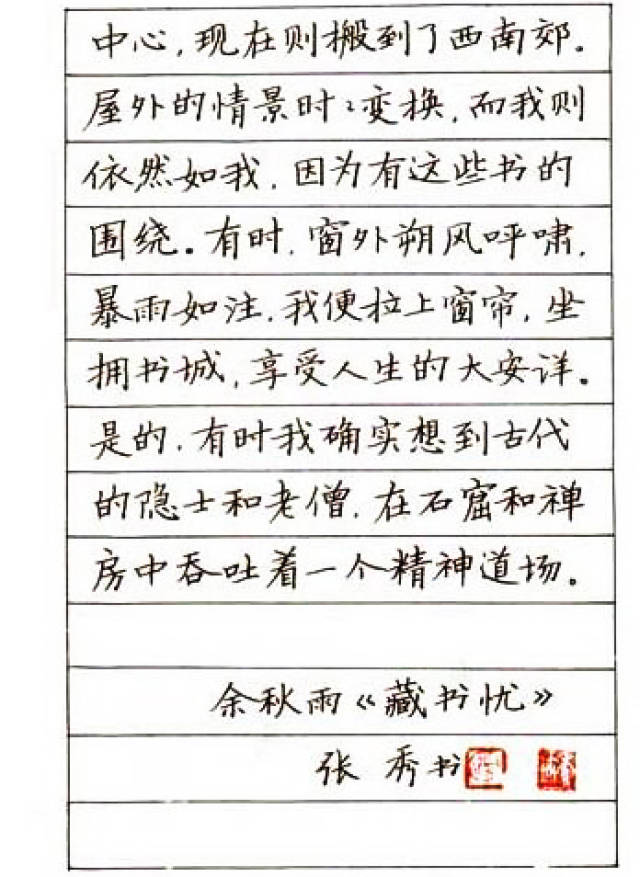 中心，现在则搬到了西南郊。
屋外的情景时々变换，而我则
依然如我，因为有这些书的
围绕。有时，窗外朔风呼啸，
暴雨如注，我便拉上窗帘，坐
拥书城，享受人生的大安详。
是的，有时我确实想到古代
的隐士和老僧，在石窟和禅
房中吞吐着一个精神道场。
余秋雨《藏书忧》
张秀书